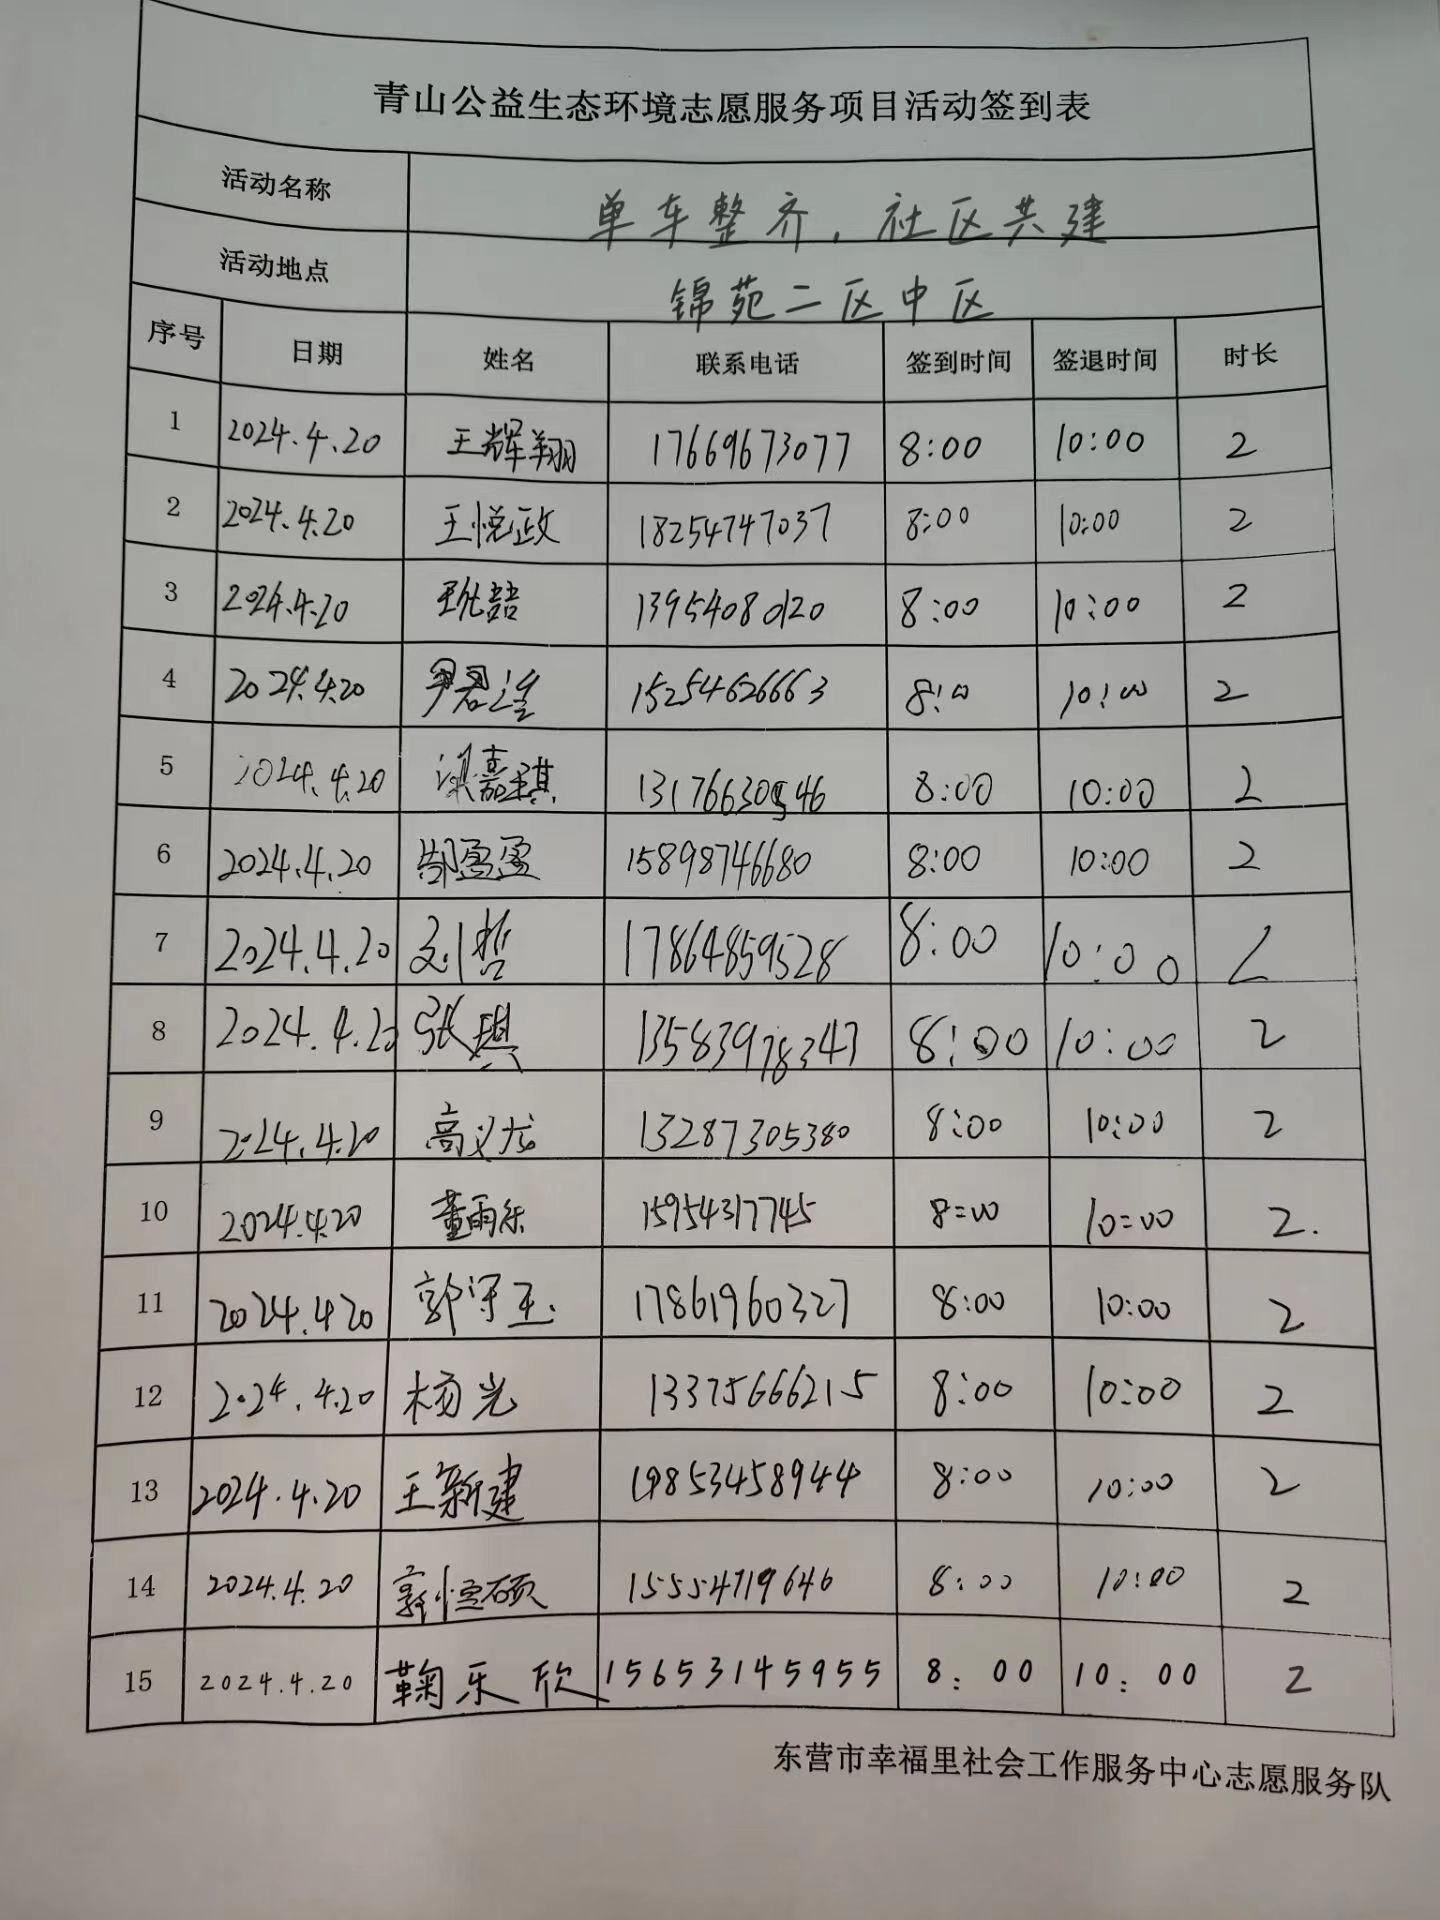 青山公益生态环境志愿服务项目活动签到表
活动名称 单车整齐，社区共建
活动地点 锦苑二区中区
序号 日期 姓名 联系电话 签到时间 签退时间 时长
1 2024.4.20 王辉翔 17669673077 8:00 10:00 2
2 2024.4.20 王悦政 18254747037 8:00 10:00 2
3 2024.4.20 13954080120 8:00 10:00 2
4 2024.4.20 15254626663 8:00 10:00 2
5 2024.4.20 梁嘉琪 13176630546 8:00 10:00 2
6 2024.4.20 郜盈盈 15898746680 8:00 10:00 2
7 2024.4.20 刘哲 17864859528 8:00 10:00 2
8 2024.4.20 张琪 13583978347 8:00 10:00 2
9 2024.4.20 高义龙 13287305380 8:00 10:00 2
10 2024.4.20 董雨乐 15954317745 8=00 10=00 2.
11 2024.4.20 郭守玉 17861960327 8:00 10:00 2
12 2024.4.20 杨光 13375666215 8:00 10:00 2
13 2024.4.20 王新建 19853458944 8:00 10:00 2
14 2024.4.20 郭恒硕 15554719646 8:00 10:00 2
15 2024.4.20 鞠乐欣 15653145955 8:00 10:00 2
东营市幸福里社会工作服务中心志愿服务队